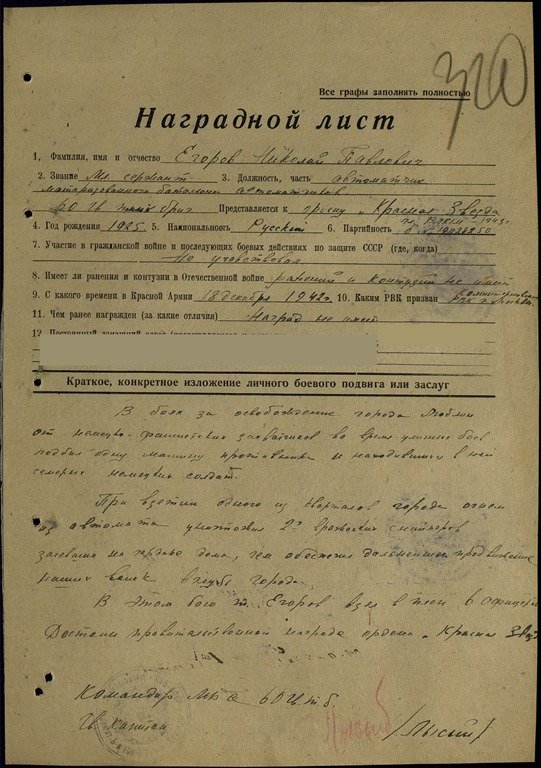 320
Все графы заполнять полностью
Наградной лист
1. Фамилия, имя и отчество Егоров Николай Павлович
2. Звание Мл. сержант 3. Должность, часть автоматчик
батальона автоматчиков
60 гв танк бриг Представляется к ордену „Красная Звезда
4. Год рождения 1925 5. Национальность Русский 6. Партийность ВЛКСМ 1943
7. Участие в гражданской войне и последующих боевых действиях по защите СССР (где, когда)
Не участвовал
8. Имеет ли ранения и контузии в Отечественной войне ранений и контузий не имеет
9. С какого времени в Красной Армии 18 декабря 1942 г. 10. Каким РВК призван
РВК г. Москвы
11. Чем ранее награжден (за какие отличия) Наград не имеет
Краткое, конкретное изложение личного боевого подвига или заслуг
В боях за освобождение города Люблин
от немецко-фашистских захватчиков во время уличных боев
подбил одну машину противника и находившихся в ней
семерых немецких солдат.
При взятии одного из кварталов города огнем
из автомата уничтожил 2х вражеских снайперов
засевших на доме, чем обеспечил дальнейшее продвижение
наших войск вглубь города.
В этом бою т. Егоров взял в плен 6 офицеров
Достоин правительственной награды ордена „Красная Звезда
Командир МБА 60 гв. т. б.
Гв. капитан /Лысый/